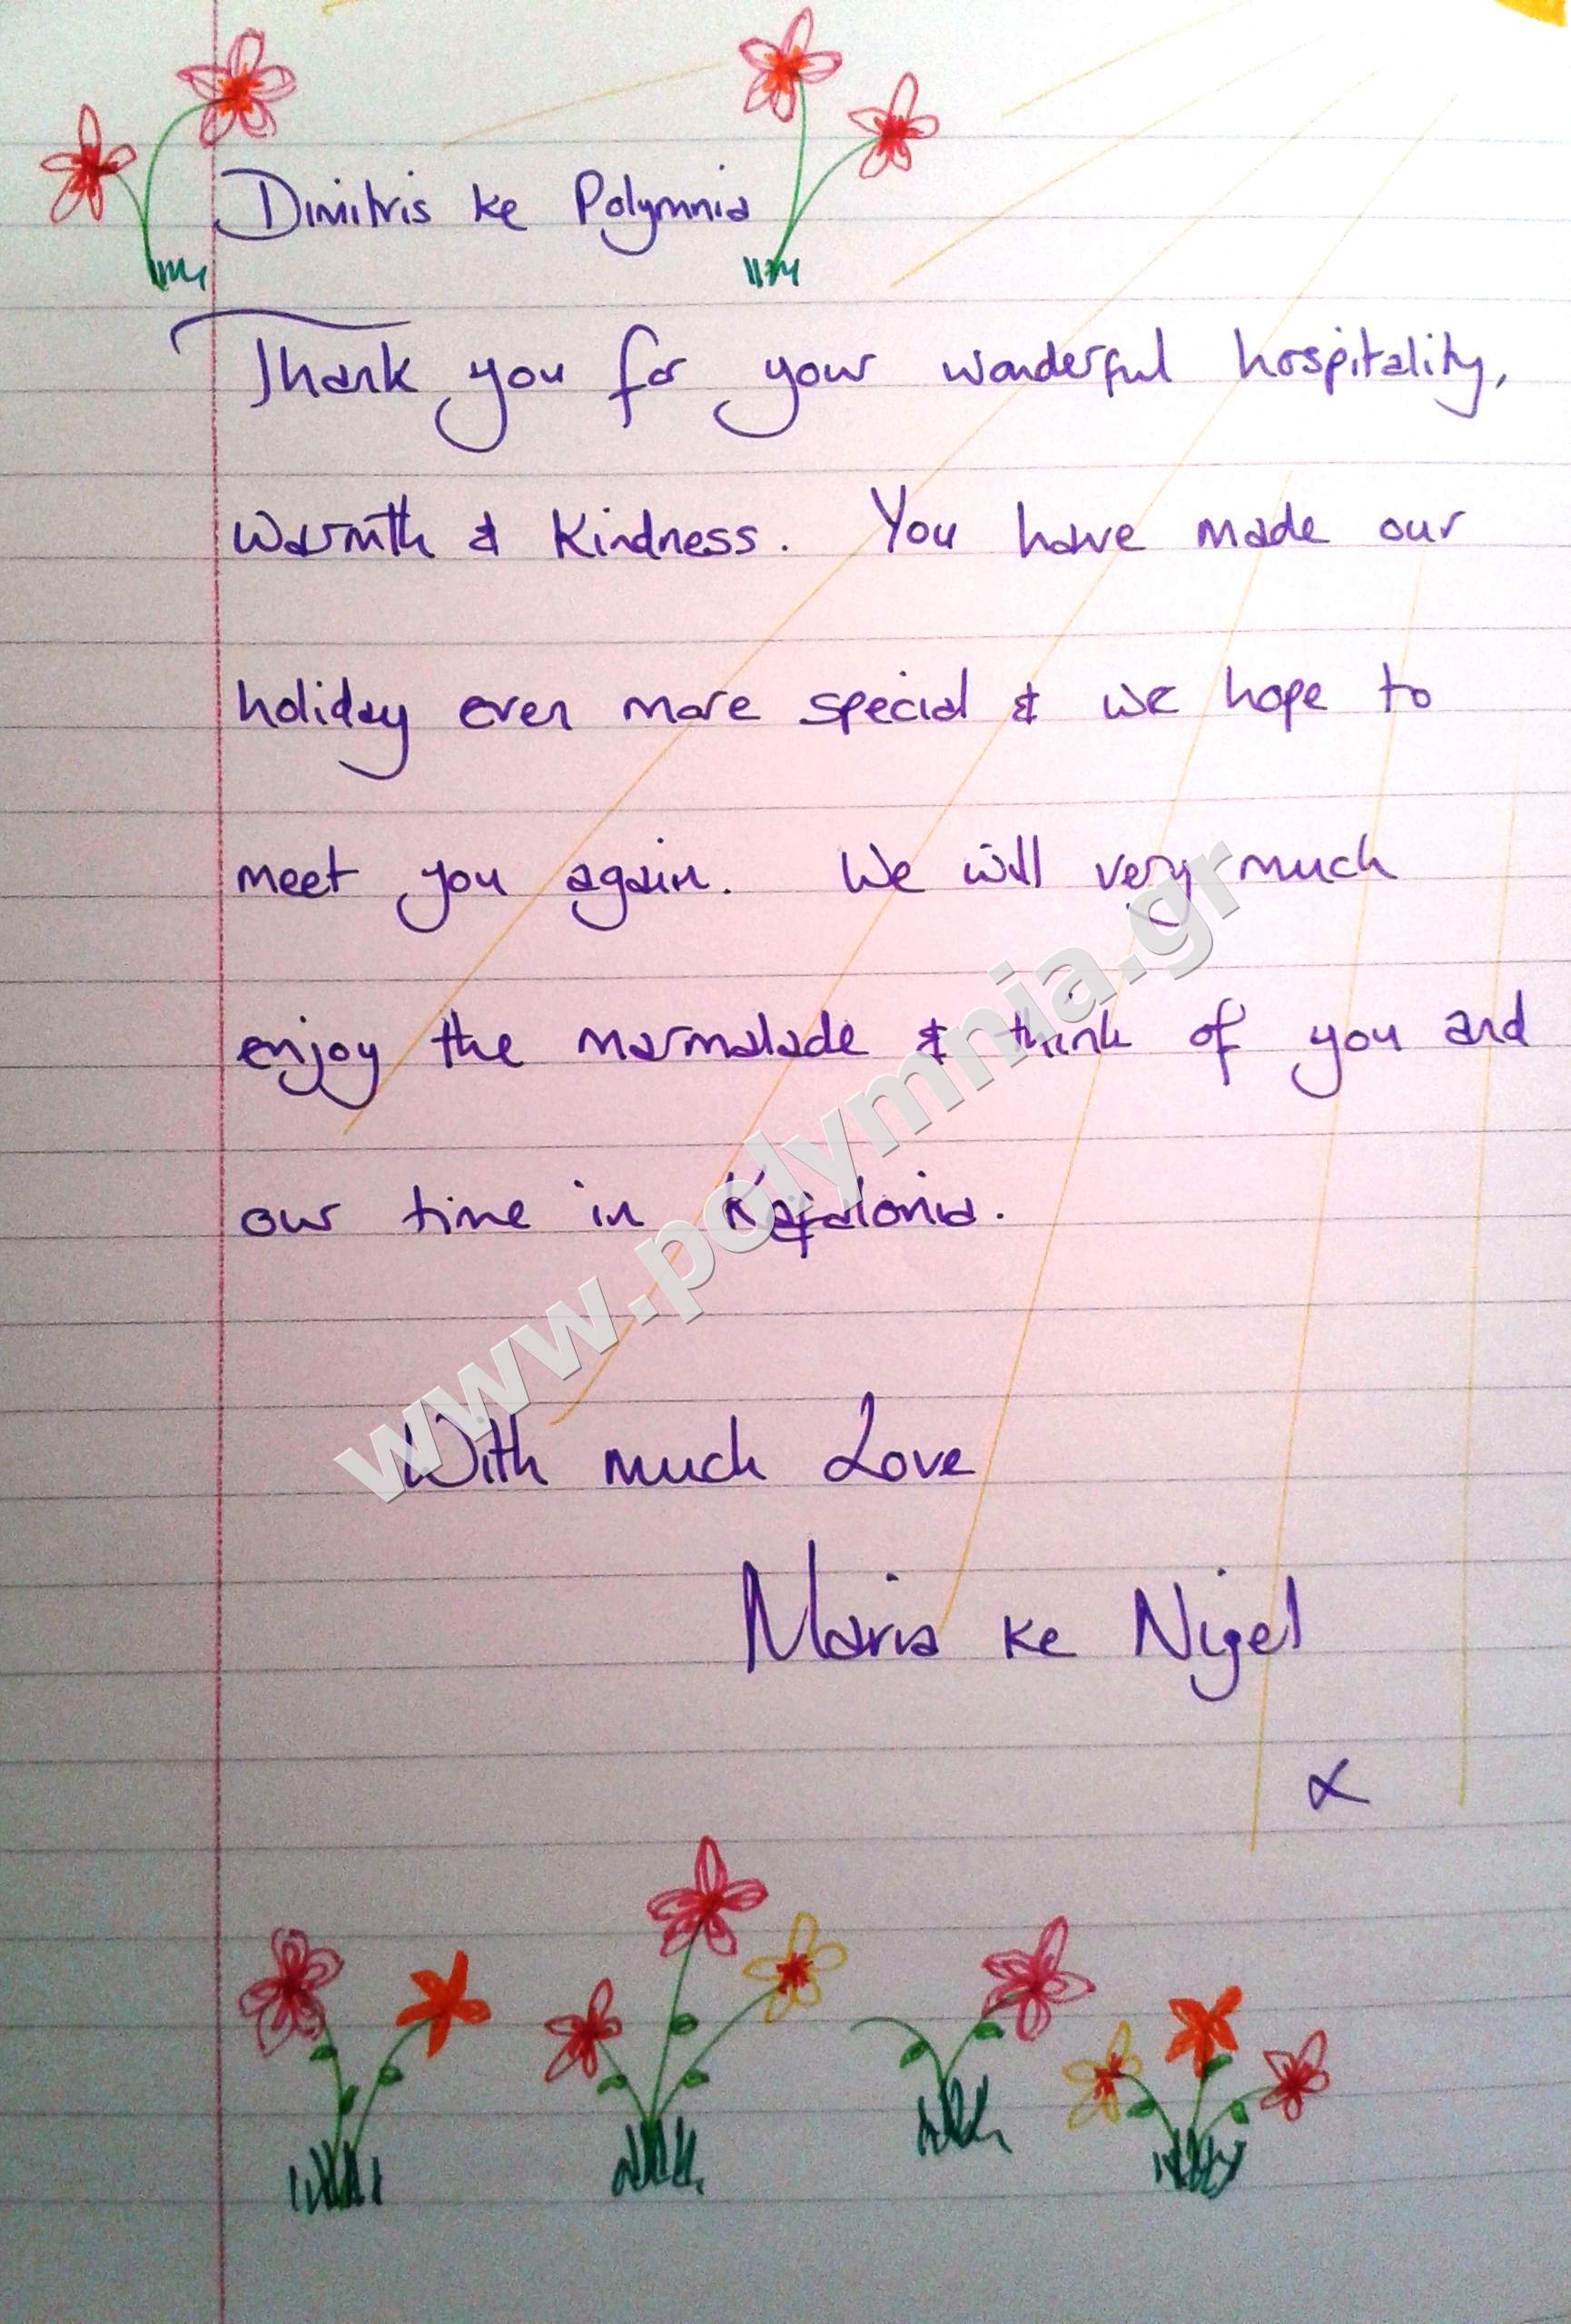 Dimitris ke Polymnia
Thank you for your wonderful hospitality,
warmth & kindness. You have made our
holiday even more special & we hope to
meet you again. We will very much
enjoy the marmalade & think of you and
our time in Kefalonia.
With much Love
Maria ke Nigel
x
www.polymnia.gr